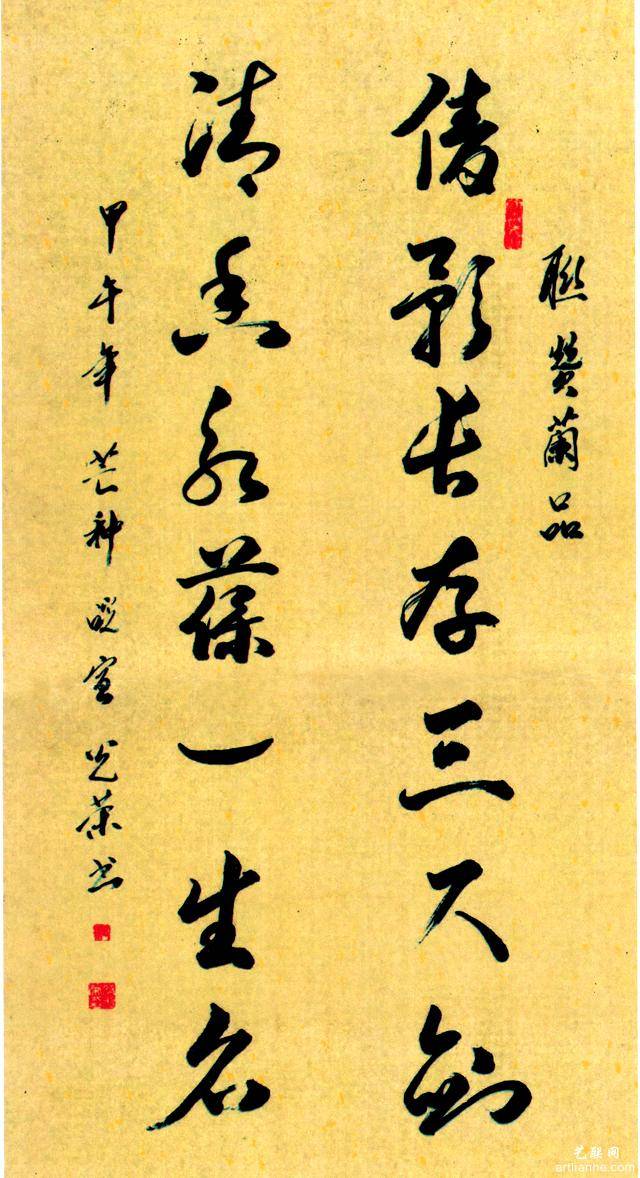 聯赞蘭品
倩影长存三尺剑
清香永葆一生名
甲午年 芒种 晓宣 光荣书
艺联网
artlianne.com